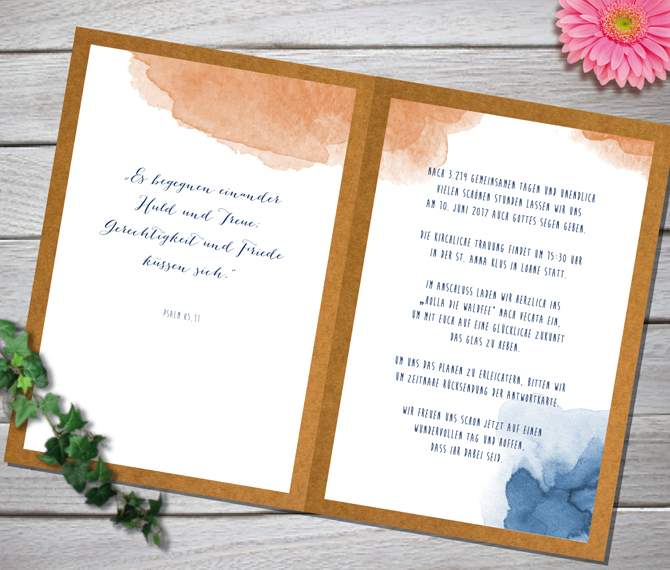 „Es begegnen einander
Huld und Treue;
Gerechtigkeit und Friede
küssen sich."
PSALM 85,11
NACH 3.219 GEMEINSAMEN TAGEN UND UNENDLICH
VIELEN SCHÖNEN STUNDEN LASSEN WIR UNS
AM 10. JUNI 2017 AUCH GOTTES SEGEN GEBEN.
DIE KIRCHLICHE TRAUUNG FINDET UM 15:30 UHR
IN DER ST. ANNA KLUS IN LOHNE STATT.
IM ANSCHLUSS LADEN WIR HERZLICH INS
„ROLLA DIE WALDFEE" NACH VECHTA EIN,
UM MIT EUCH AUF EINE GLÜCKLICHE ZUKUNFT
DAS GLAS ZU HEBEN.
UM UNS DAS PLANEN ZU ERLEICHTERN, BITTEN WIR
UM ZEITNAHE RÜCKSENDUNG DER ANTWORTKARTE.
WIR FREUEN UNS SCHON JETZT AUF EINEN
WUNDERVOLLEN TAG UND HOFFEN,
DASS IHR DABEI SEID.